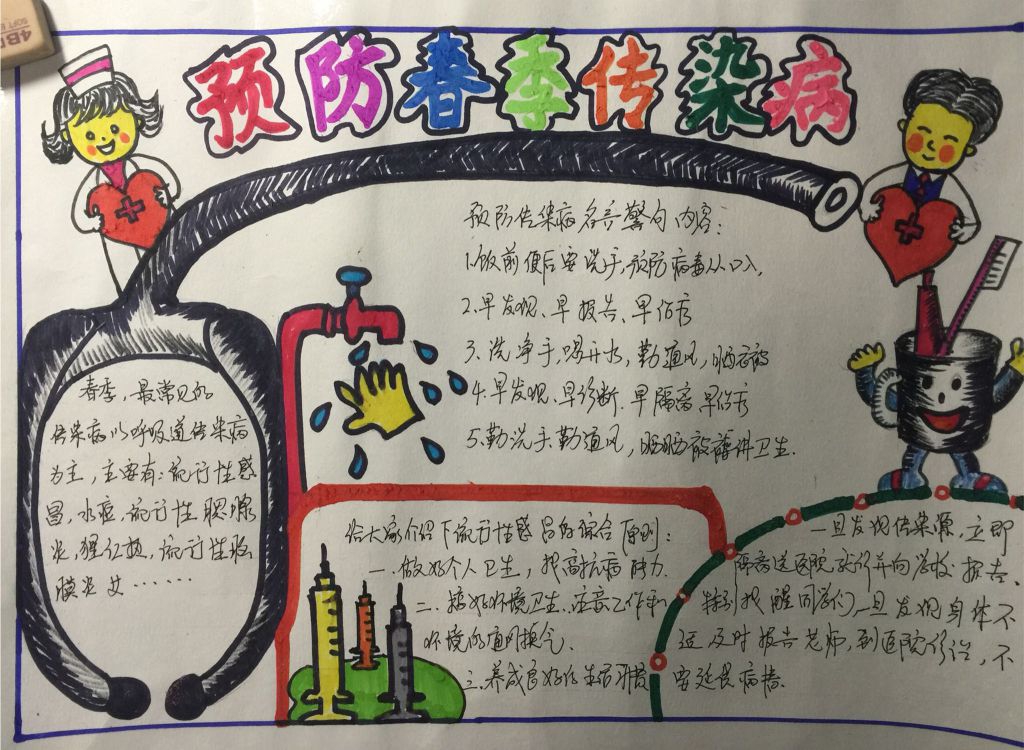 预防春季传染病
预防传染病名言警句内容:
1.饭前便后要洗手,预防病毒从口入.
2.早发现、早报告、早治疗
3.洗净手、喝开水,勤通风,晒衣被
4.早发现、早诊断.早隔离 早治疗
5.勤洗手、勤通风,晒晒衣被讲卫生.
春季,最常见的
传染病以呼吸道传染病
为主,主要有:流行性感
冒,水痘,流行性腮腺
炎,猩红热,流行性脑
膜炎……
给大家介绍下流行性感冒的综合原则:
一.做好个人卫生,提高抗病能力.
二.搞好环境卫生,注意工作和
环境的通风换气.
三.养成良好的生活习惯
一旦发现传染源,立即
隔离送医院就诊并向学校报告.
特别提醒同学们,一旦发现身体不
适及时报告老师,到医院诊治,不
要延误病情.
4B